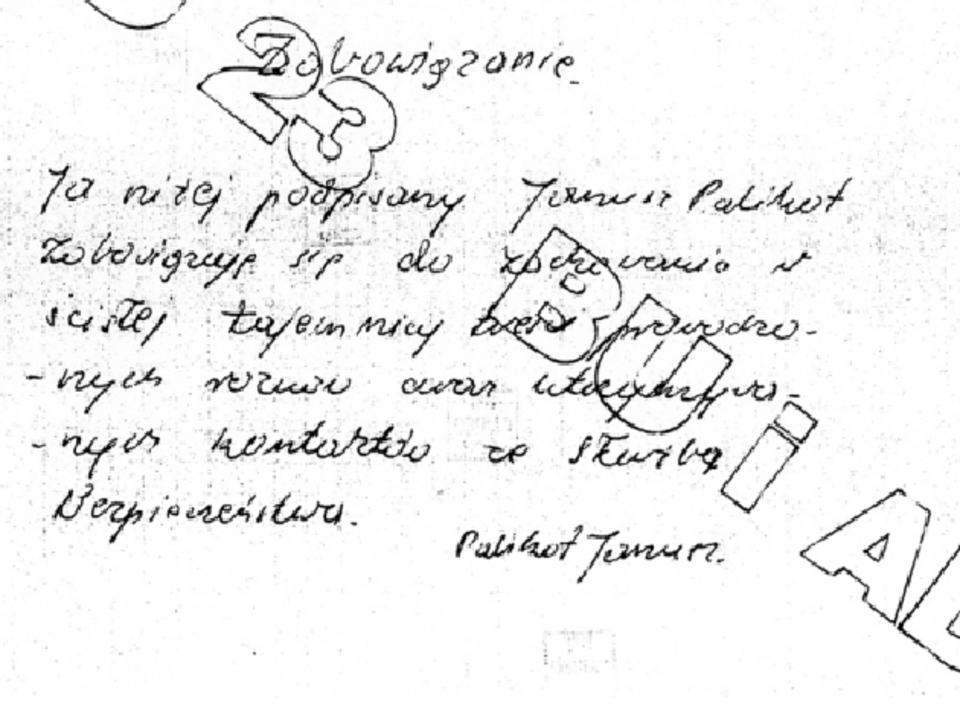 23
Zobowiązanie
Ja niżej podpisany Janusz Palikot
Zobowiązuję się do zachowania w
ścisłej tajemnicy treści prowadzo-
-nych rozmów oraz utrzymywa-
-nych kontaktów ze Służbą
Bezpieczeństwa.
Palikot Janusz.
BU i AD